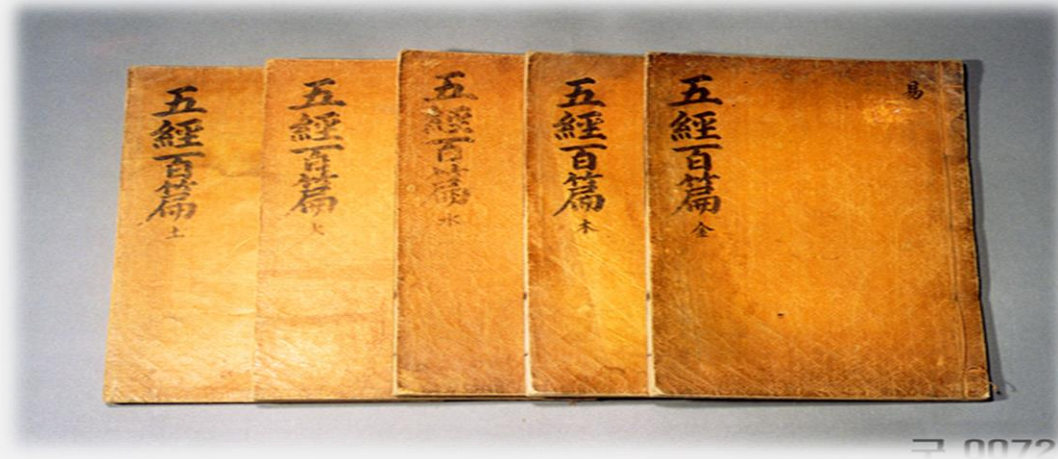 五經百篇 土
五經百篇 火
五經百篇 水
五經百篇 木
五經百篇 金
易
구 0072